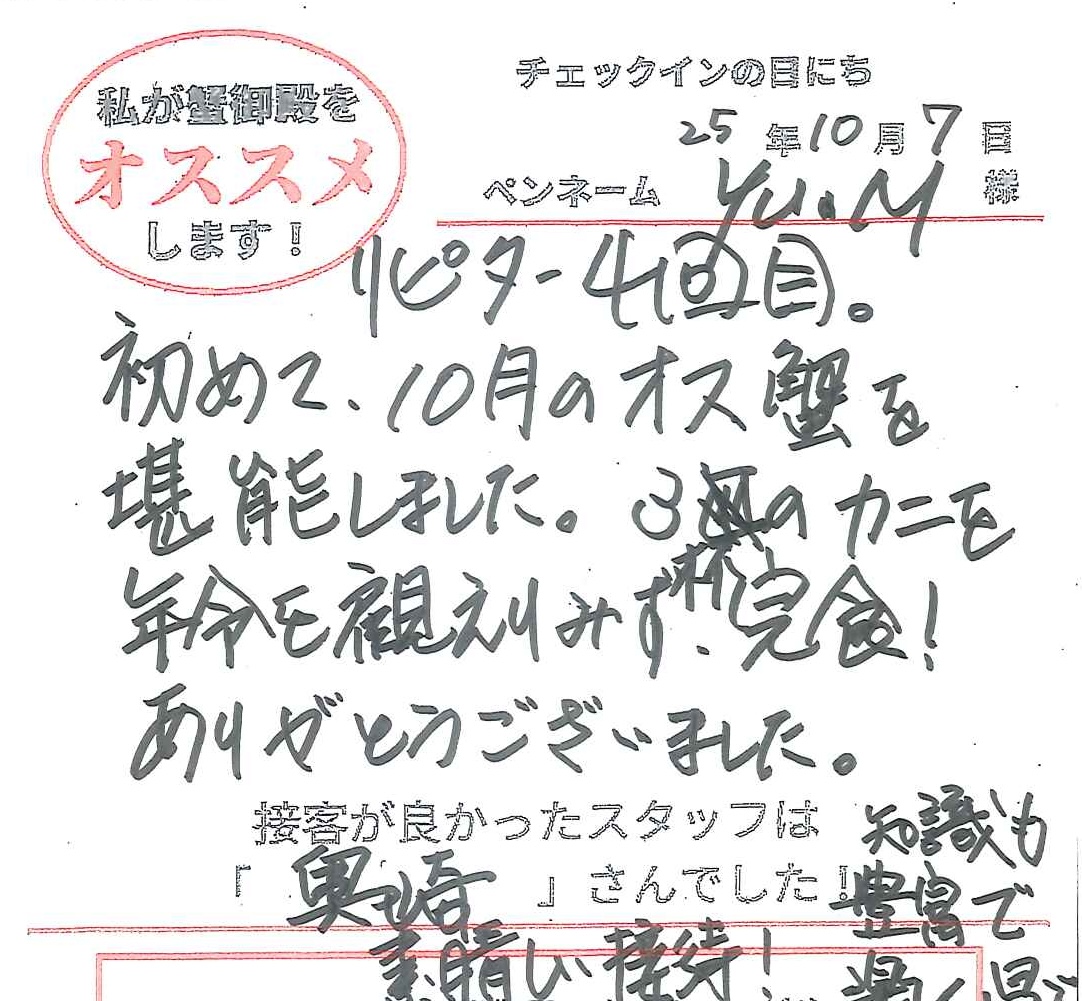 私が蟹御殿を
オススメ
します！
チェックインの日にち
25年10月7日
ペンネーム Yu.M 様
リピター4回目。
初めて、10月のオス蟹を
堪能しました。3杯のカニを
年令を観えりみず、完食！
ありがとうございました。
接客が良かったスタッフは
「奥崎」さんでした！
素晴しい接待！
知識も
豊富で